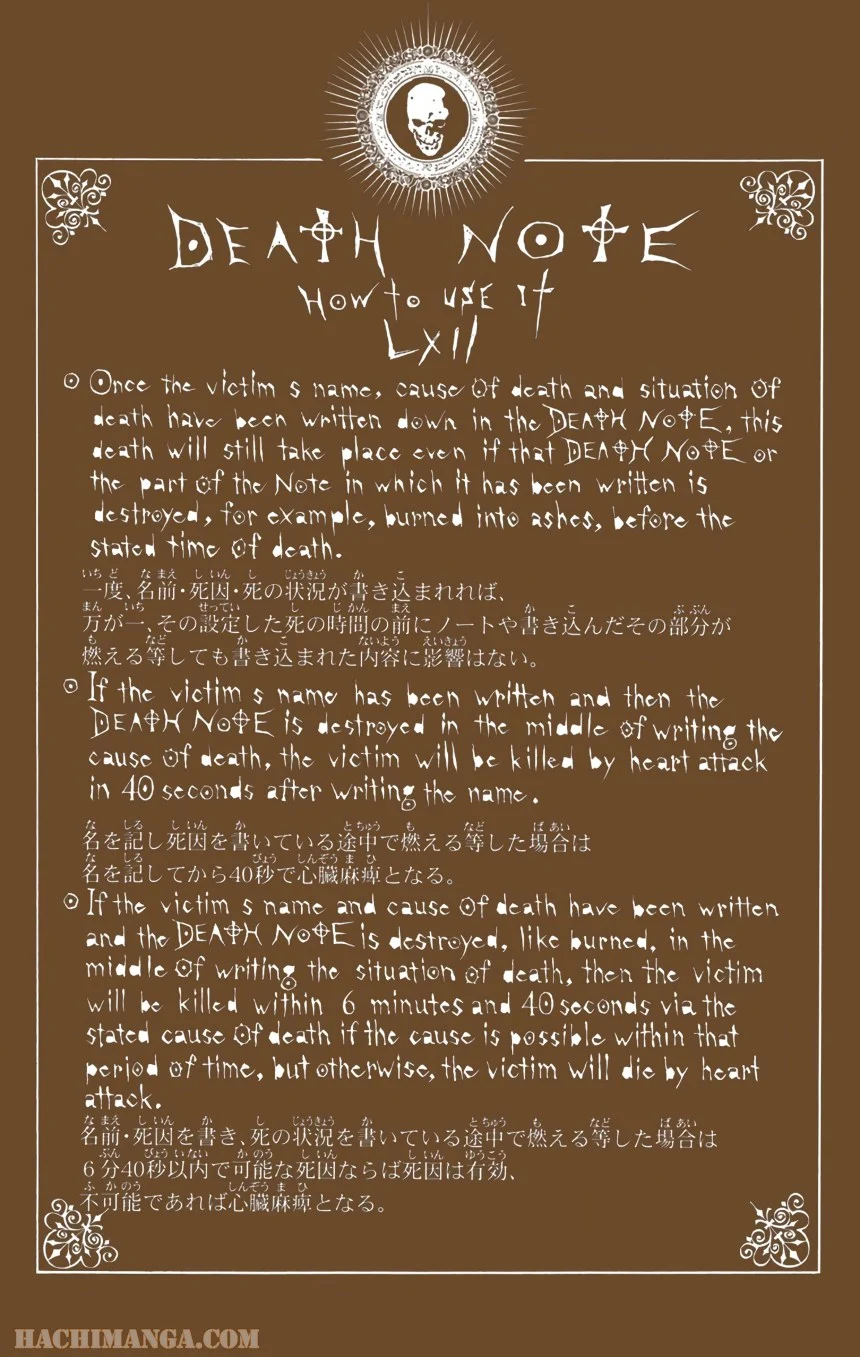 DEATH NOTE
How to use it
LXII
Once the victim s name, cause of death and situation of
death have been written down in the DEATH NOTE, this
death will still take place even if that DEATH NOTE or
the part of the Note in which it has been written is
destroyed, for example, burned into ashes, before the
stated time of death.
一度、名前・死因・死の状況が書き込まれれば、
万が一、その設定した死の時間の前にノートや書き込んだその部分が
燃える等しても書き込まれた内容に影響はない。
If the victim s name has been written and then the
DEATH NOTE is destroyed in the middle of writing the
cause of death, the victim will be killed by heart attack
in 40 seconds after writing the name.
名を記し死因を書いている途中で燃える等した場合は
名を記してから40秒で心臓麻痺となる。
If the victim s name and cause of death have been written
and the DEATH NOTE is destroyed, like burned, in the
middle of writing the situation of death, then the victim
will be killed within 6 minutes and 40 seconds via the
stated cause of death if the cause is possible within that
period of time, but otherwise, the victim will die by heart
attack.
名前・死因を書き、死の状況を書いている途中で燃える等した場合は
6分40秒以内で可能な死因ならば死因は有効、
不可能であれば心臓麻痺となる。
HACHIMANGA.COM